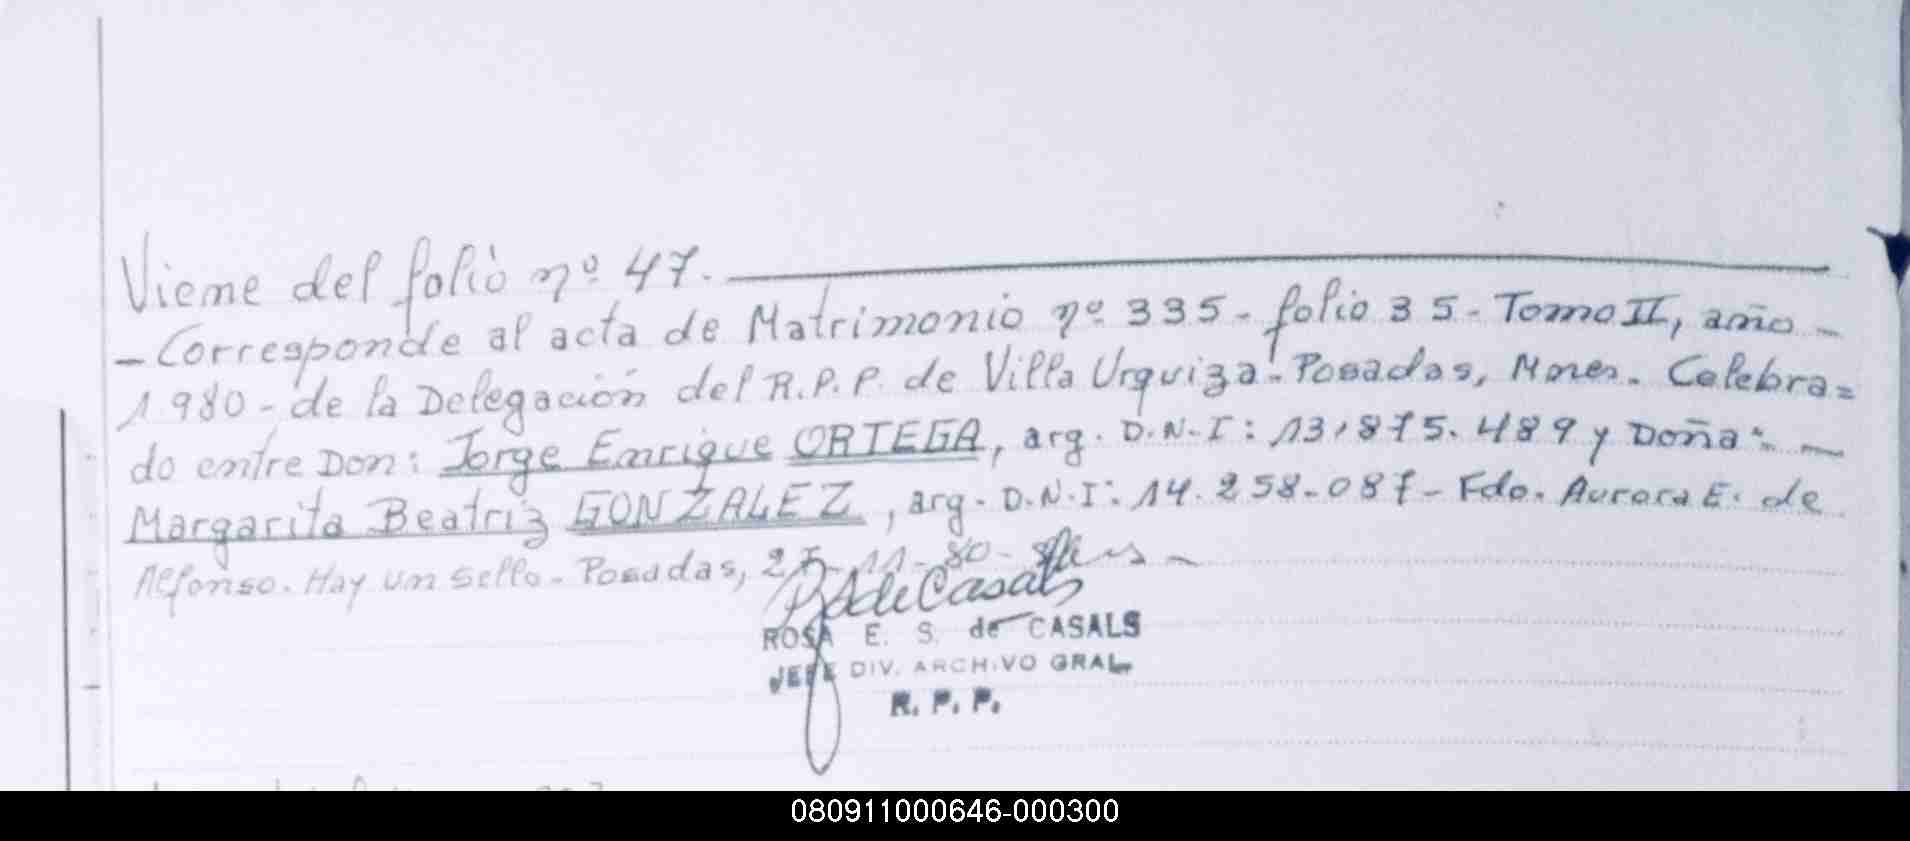 Viene del folio nº 47.
- Corresponde al acta de Matrimonio nº 335 - folio 35 - Tomo II, año -
1980 - de la Delegación del R.P.P. de Villa Urquiza - Posadas, Mnes. Celebra=
do entre Don: Jorge Enrique ORTEGA, arg. D.N.I: 13.875.489 y Doña: -
Margarita Beatriz GONZALEZ, arg. D.N.I: 14.258.087 - Fdo. Aurora E. de
Alfonso. Hay un sello - Posadas, 11-80-
RSdeCasals
ROSA E. S. de CASALS
JEFE DIV. ARCHIVO GRAL.
R. P. P.
080911000646-000300